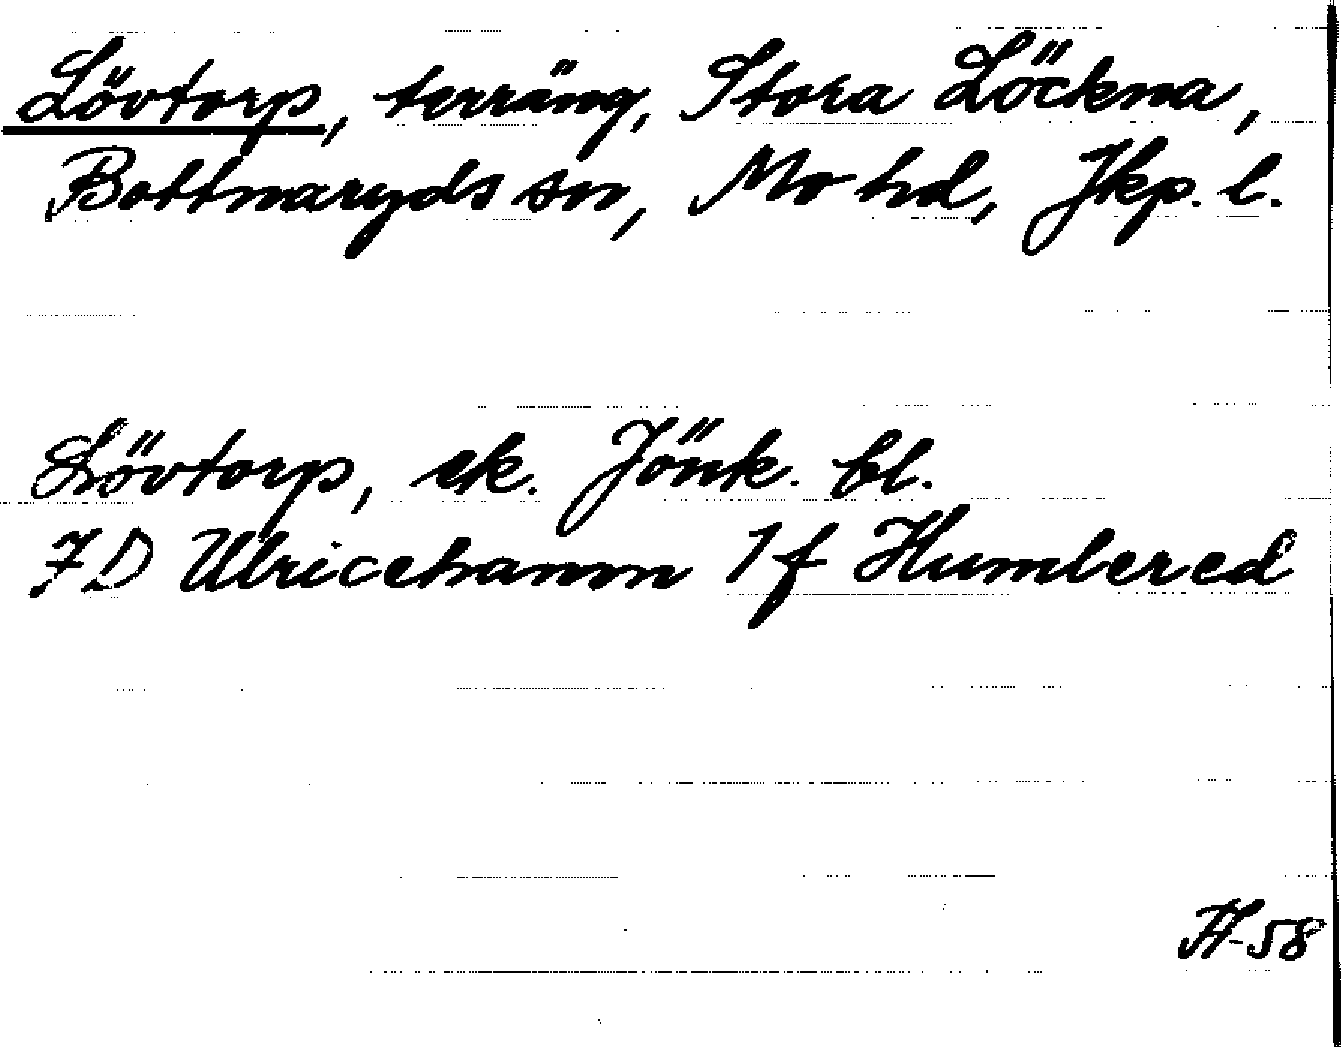 Lövtorp, terräng, Stora Löckna,
Bottnaryds sn, Mo hd, Jkp. l.
Lövtorp, ek. Jönk. bl.
7D Ulricehamn 1f Humlered
H-58